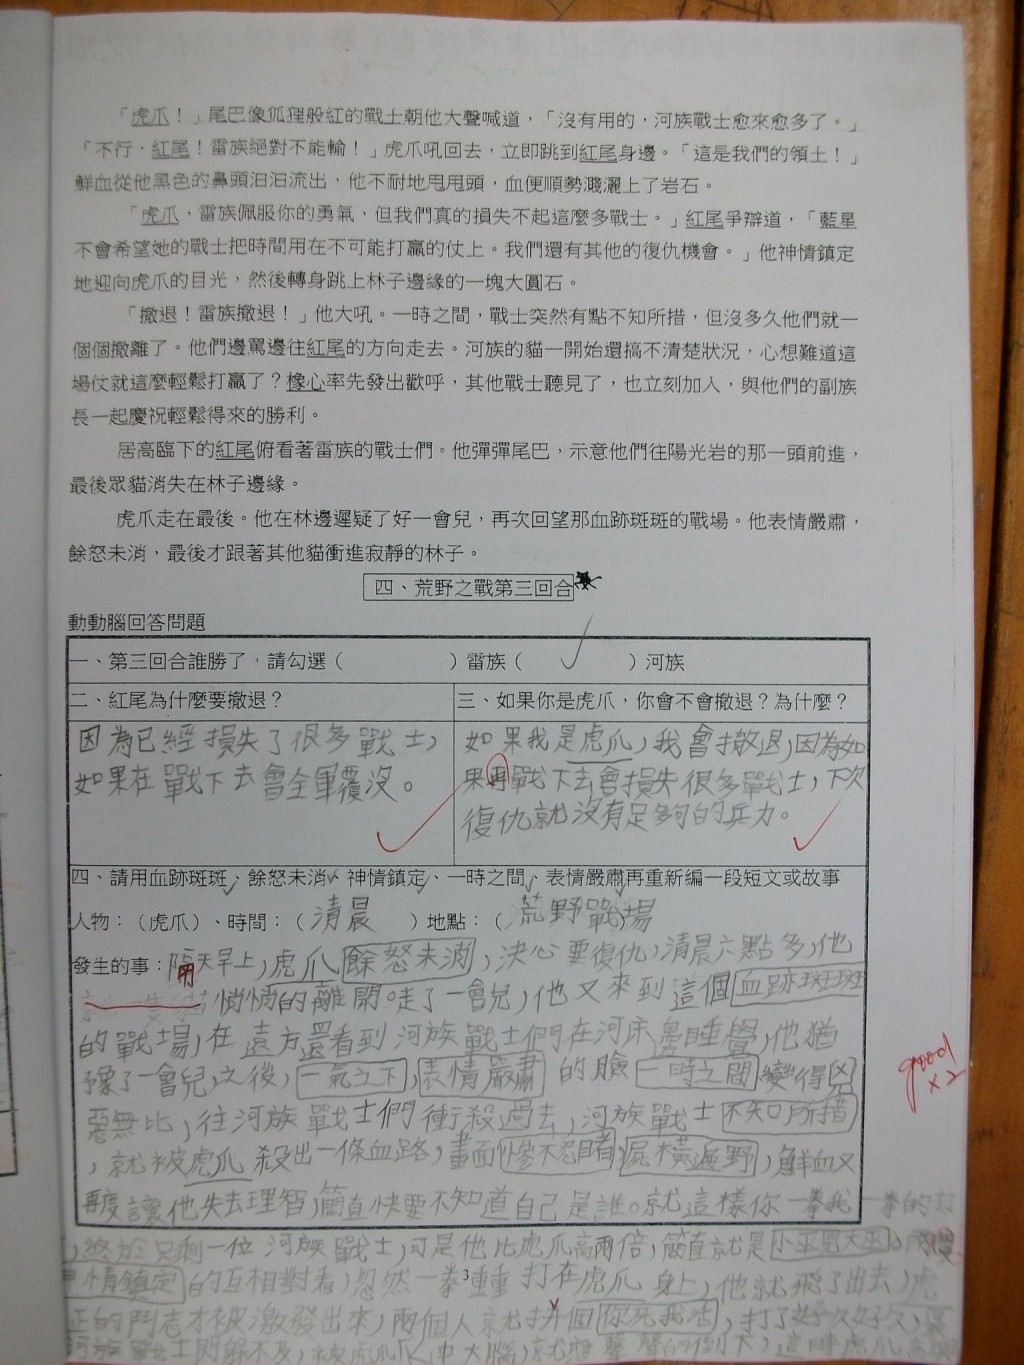 「虎爪！」尾巴像狐狸般紅的戰士朝他大聲喊道，「沒有用的，河族戰士愈來愈多了。」
「不行，紅尾！雷族絕對不能輸！」虎爪吼回去，立即跳到紅尾身邊。「這是我們的領土！」
鮮血從他黑色的鼻頭汩汩流出，他不耐地甩甩頭，血便順勢濺灑上了岩石。
「虎爪，雷族佩服你的勇氣，但我們真的損失不起這麼多戰士。」紅尾爭辯道，「藍星
不會希望她的戰士把時間用在不可能打贏的仗上。我們還有其他的復仇機會。」他神情鎮定
地迎向虎爪的目光，然後轉身跳上林子邊緣的一塊大圓石。
「撤退！雷族撤退！」他大吼。一時之間，戰士突然有點不知所措，但沒多久他們就一
個個撤離了。他們邊罵邊往紅尾的方向走去。河族的貓一開始還搞不清楚狀況，心想難道這
場仗就這麼輕鬆打贏了？橡心率先發出歡呼，其他戰士聽見了，也立刻加入，與他們的副族
長一起慶祝輕鬆得來的勝利。
居高臨下的紅尾俯看著雷族的戰士們。他彈彈尾巴，示意他們往陽光岩的那一頭前進，
最後眾貓消失在林子邊緣。
虎爪走在最後。他在林邊遲疑了好一會兒，再次回望那血跡斑斑的戰場。他表情嚴肅，
餘怒未消，最後才跟著其他貓衝進寂靜的林子。
四、荒野之戰第三回合★
動動腦回答問題
一、第三回合誰勝了，請勾選（　　　）雷族（　✓　）河族
二、紅尾為什麼要撤退？
因為已經損失了很多戰士，
如果在戰下去會全軍覆沒。
三、如果你是虎爪，你會不會撤退？為什麼？
如果我是虎爪，我會撤退，因為如
果再戰下去會損失很多戰士，下次
復仇就沒有足夠的兵力。
四、請用血跡斑斑、餘怒未消、神情鎮定、一時之間、表情嚴肅再重新編一段短文或故事
人物：（虎爪）、時間：（清晨）地點：（荒野戰場
發生的事：隔天早上，虎爪餘怒未消，決心要復仇，清晨六點多，他
悄悄的離開。走了一會兒，他又來到這個血跡斑斑
的戰場，在遠方還看到河族戰士們在河床邊睡覺，他猶
豫了一會兒，之後，一氣之下，表情嚴肅的臉一時之間變得兇
惡無比，往河族戰士們衝殺過去，河族戰士不知所措
，就被虎爪殺出一條血路，畫面慘不忍睹，屍橫遍野，鮮血又
再度讓他失去理智，簡直快要不知道自己是誰。就這樣你一拳我一拳的打
，終於只剩一位河族戰士，可是他比虎爪高兩倍，簡直就是小巫見大巫。
神情鎮定的互相對看，忽然一拳重重打在虎爪身上，他就飛了出去，虎
正的鬥志才被激發出來，兩個人就拚個你死我活，打了好久好久，
河族戰士
good
x2
3